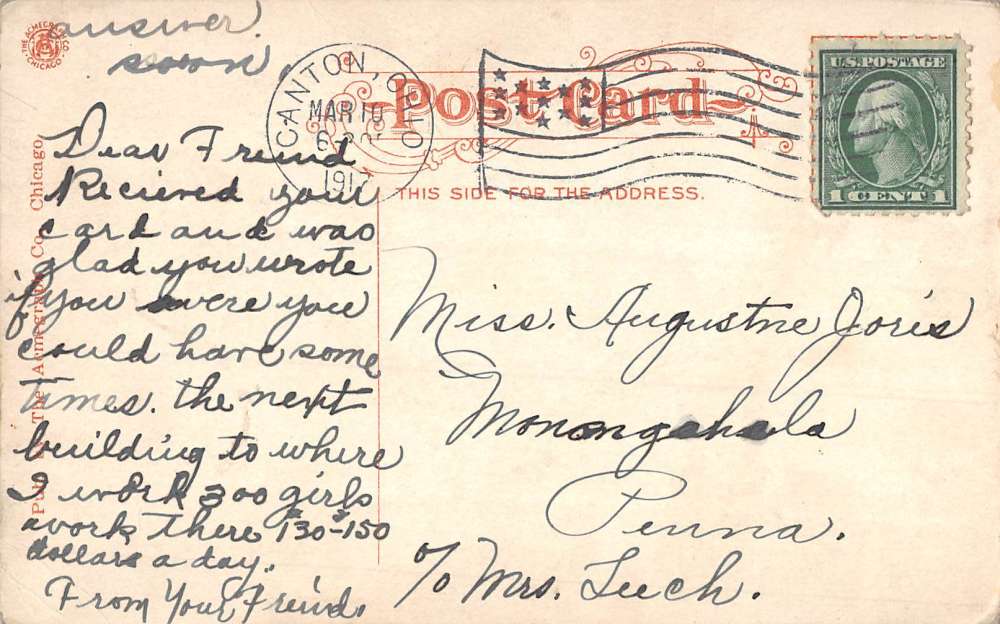 answer
soon.
THE ACMEGRAPH CO
CHICAGO
CANTON, OHIO
MAR 10
191
Post Card
THIS SIDE FOR THE ADDRESS.
U.S. POSTAGE
1 CENT 1
Dear Freind
Recieved your
card and was
glad you wrote
if you were you
could have some
times. the next
building to where
I work 300 girls
work there 130-150
dollars a day.
From Your Freind.
Pub. by The Acmegraph Co., Chicago.
Miss. Augustine Joris
Monongahala
Penna.
c/o Mrs. Leech.